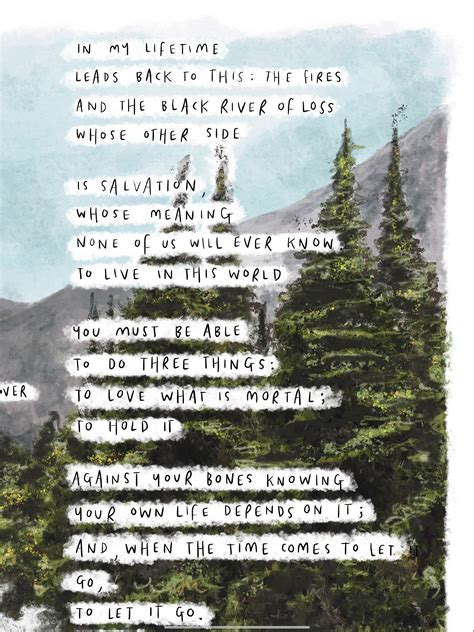 IN MY LIFETIME
LEADS BACK TO THIS: THE FIRES
AND THE BLACK RIVER OF LOSS
WHOSE OTHER SIDE
IS SALVATION,
WHOSE MEANING
NONE OF US WILL EVER KNOW.
TO LIVE IN THIS WORLD
YOU MUST BE ABLE
TO DO THREE THINGS:
OVER TO LOVE WHAT IS MORTAL;
TO HOLD IT
AGAINST YOUR BONES KNOWING
YOUR OWN LIFE DEPENDS ON IT;
AND, WHEN THE TIME COMES TO LET
GO,
TO LET IT GO.